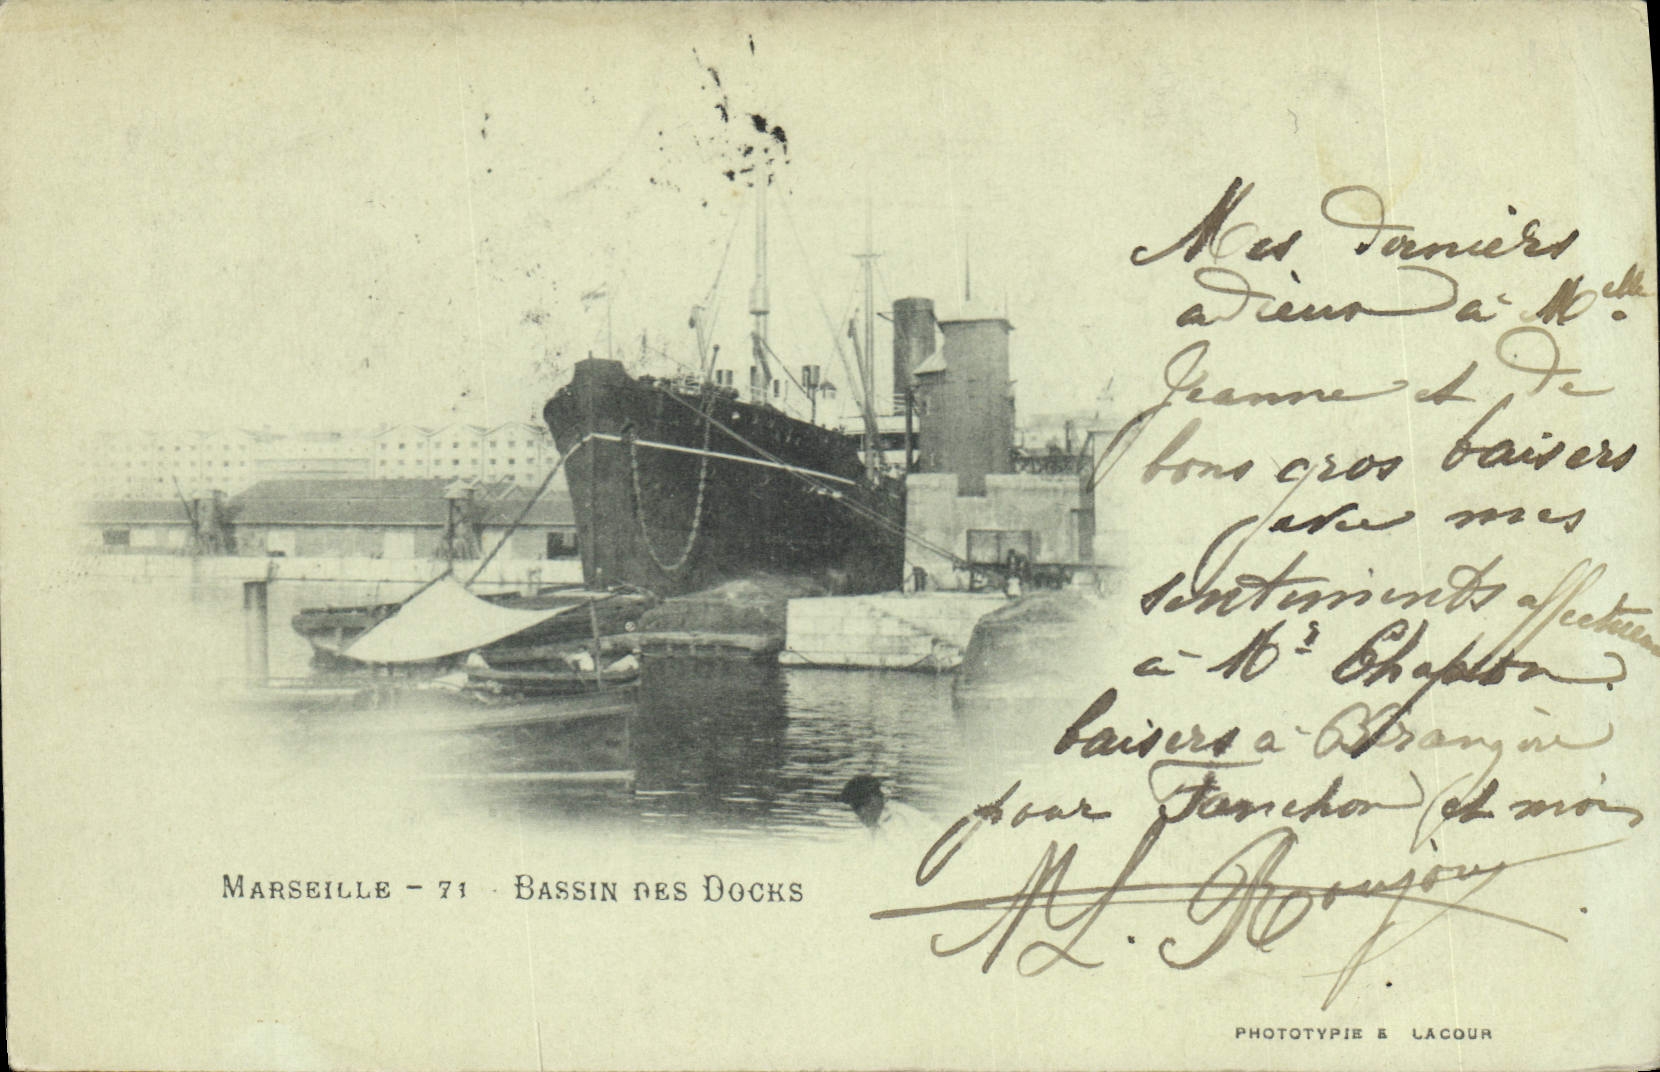 Mes derniers
adieux à Melle
Jeanne et de
bons gros baisers
avec mes
sentiments affectueux
à Mr Chapson.
baisers à Bérangère
pour Fanchon et moi
M L. Roujou
MARSEILLE - 71 BASSIN DES DOCKS
PHOTOTYPIE E LACOUR